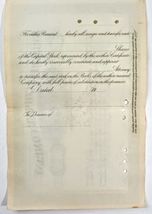 For value Received, hereby sell, assign and transfer unto
Shares
of the Capital Stock represented by the within Certificate
and do hereby irrevocably constitute and appoint
Attorney
to transfer the said stock on the Books of the within named
Company with full power of substitution in the premises.
Dated 19
In Presence of